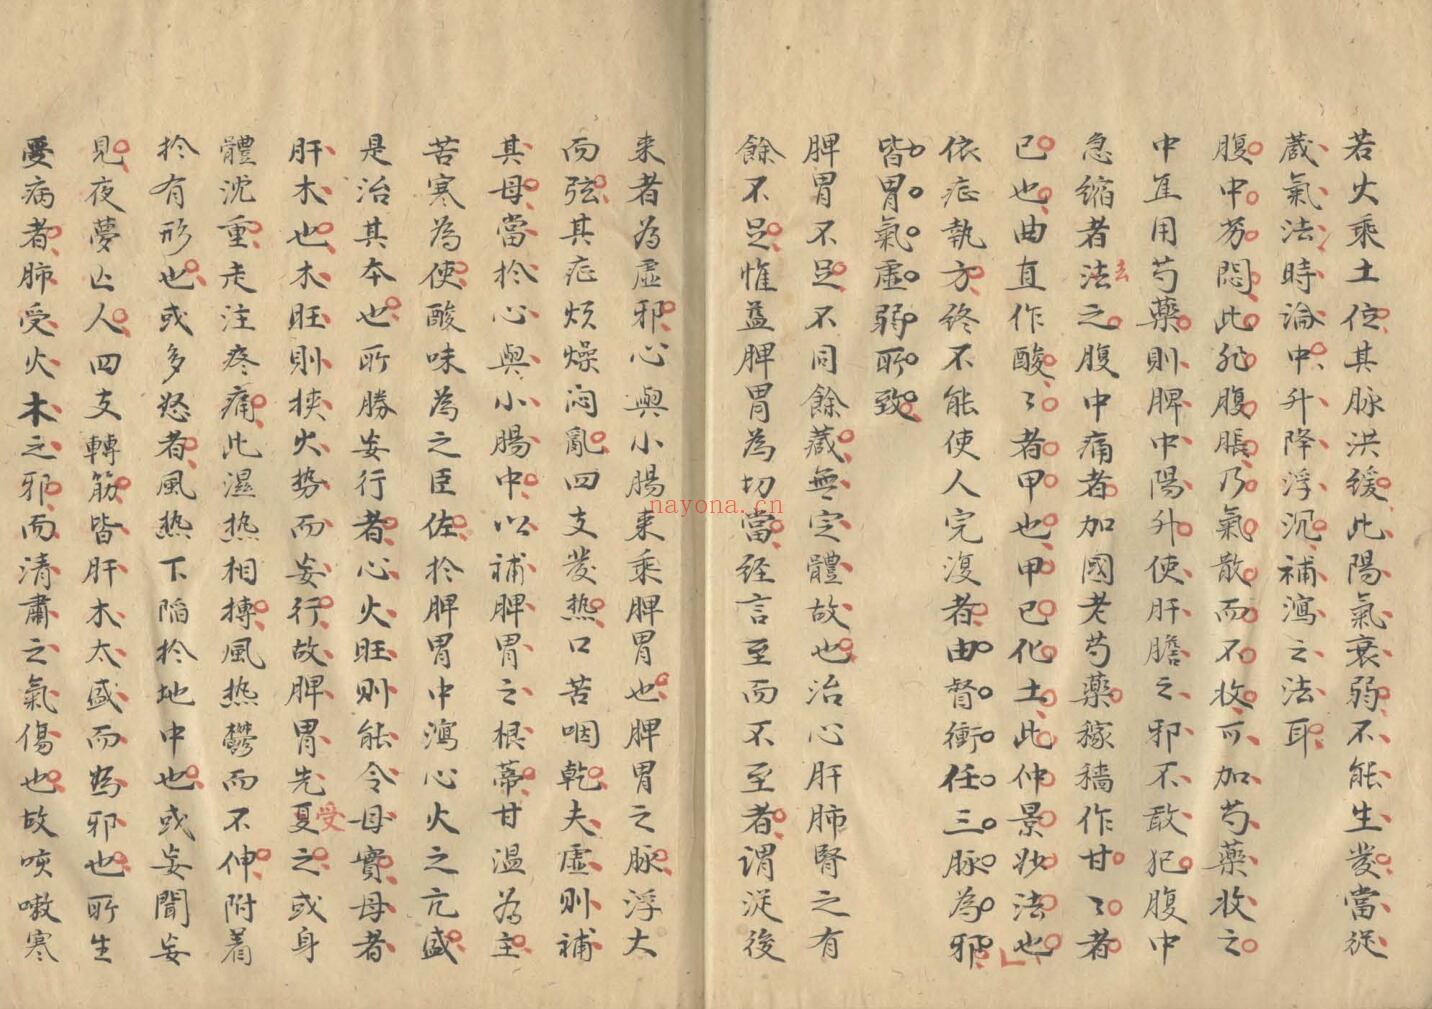 若火乘土位其脉洪緩此陽氣衰弱不能生發當從
蔵氣法時論中升降浮沉補瀉之法耳
腹中夯悶此非腹脹乃氣散而不收可加芍藥收之
中焦用芍藥則脾中陽升使肝膽之邪不敢犯腹中
急縮者法去之腹中痛者加國老芍藥稼穡作甘〻者
已也曲直作酸〻者甲也甲已化土此仲景妙法也
依症執方終不能使人完復者由督衝任三脉為邪
皆胃氣虛弱所致
脾胃不足不同餘蔵無定體故也治心肝肺腎之有
餘不足惟益脾胃為切當経言至而不至者謂從後
来者為虛邪心與小腸来乘脾胃也脾胃之脉浮大
而弦其症煩燥闷亂四支發热口苦咽乾夫虛则補
其母當扵心與小腸中以補脾胃之根蒂甘温為主
苦寒為使酸味為之臣佐扵脾胃中瀉心火之亢盛
是治其本也所勝妄行者心火旺则能令母實母者
肝木也木旺則挾火势而妄行故脾胃先夏受之或身
體沈重走注疼痛此濕热相搏風热鬱而不伸附着
扵有形也或多怒者風热下陷扵地中也或妄聞妄
見夜夢亾人四支轉筋皆肝木太盛而為邪也所生
受病者肺受火木之邪而清肅之氣傷也故咳嗽寒
nayona.cn